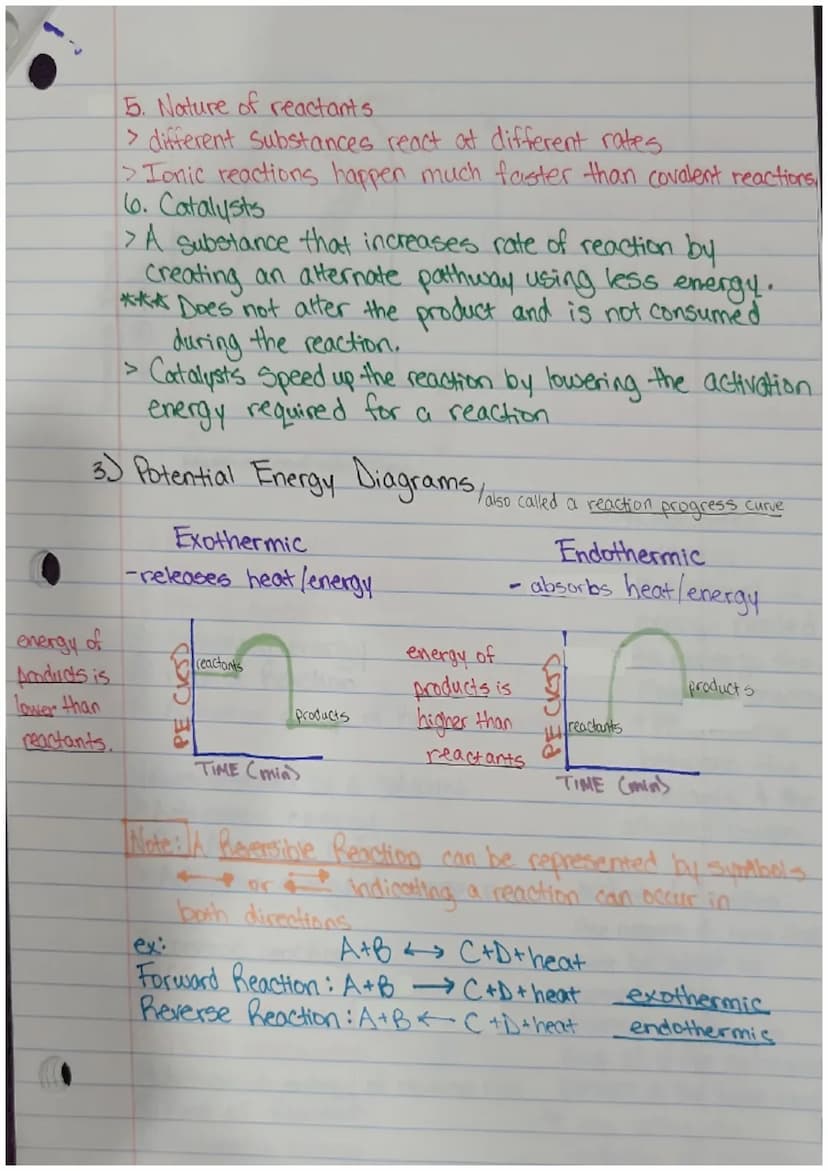 5. Nature of reactants
> different substances react at different rates
> Ionic reactions happen much faster than covalent reactions
6. Catalysts
> A substance that increases rate of reaction by
creating an alternate pathway using less energy.
*** Does not alter the product and is not consumed
during the reaction.
> Catalysts speed up the reaction by lowering the activation
energy required for a reaction
3) Potential Energy Diagrams/also called a reaction progress curve
Exothermic
-releases heat/energy
energy of
products is
lower than
reactants.
PE (KJ)
reactants
products
TIME (min)
Endothermic
- absorbs heat/energy
energy of
products is
higher than
reactants
PE (KJ)
reactants
products
TIME (min)
Note: A Reversible Reaction can be represented by symbols
↔ or ⇄ indicating a reaction can occur in
both directions
ex: A+B ↔ C+D+heat
Forward Reaction: A+B → C+D+heat exothermic
Reverse Reaction: A+B ← C+D+heat endothermic